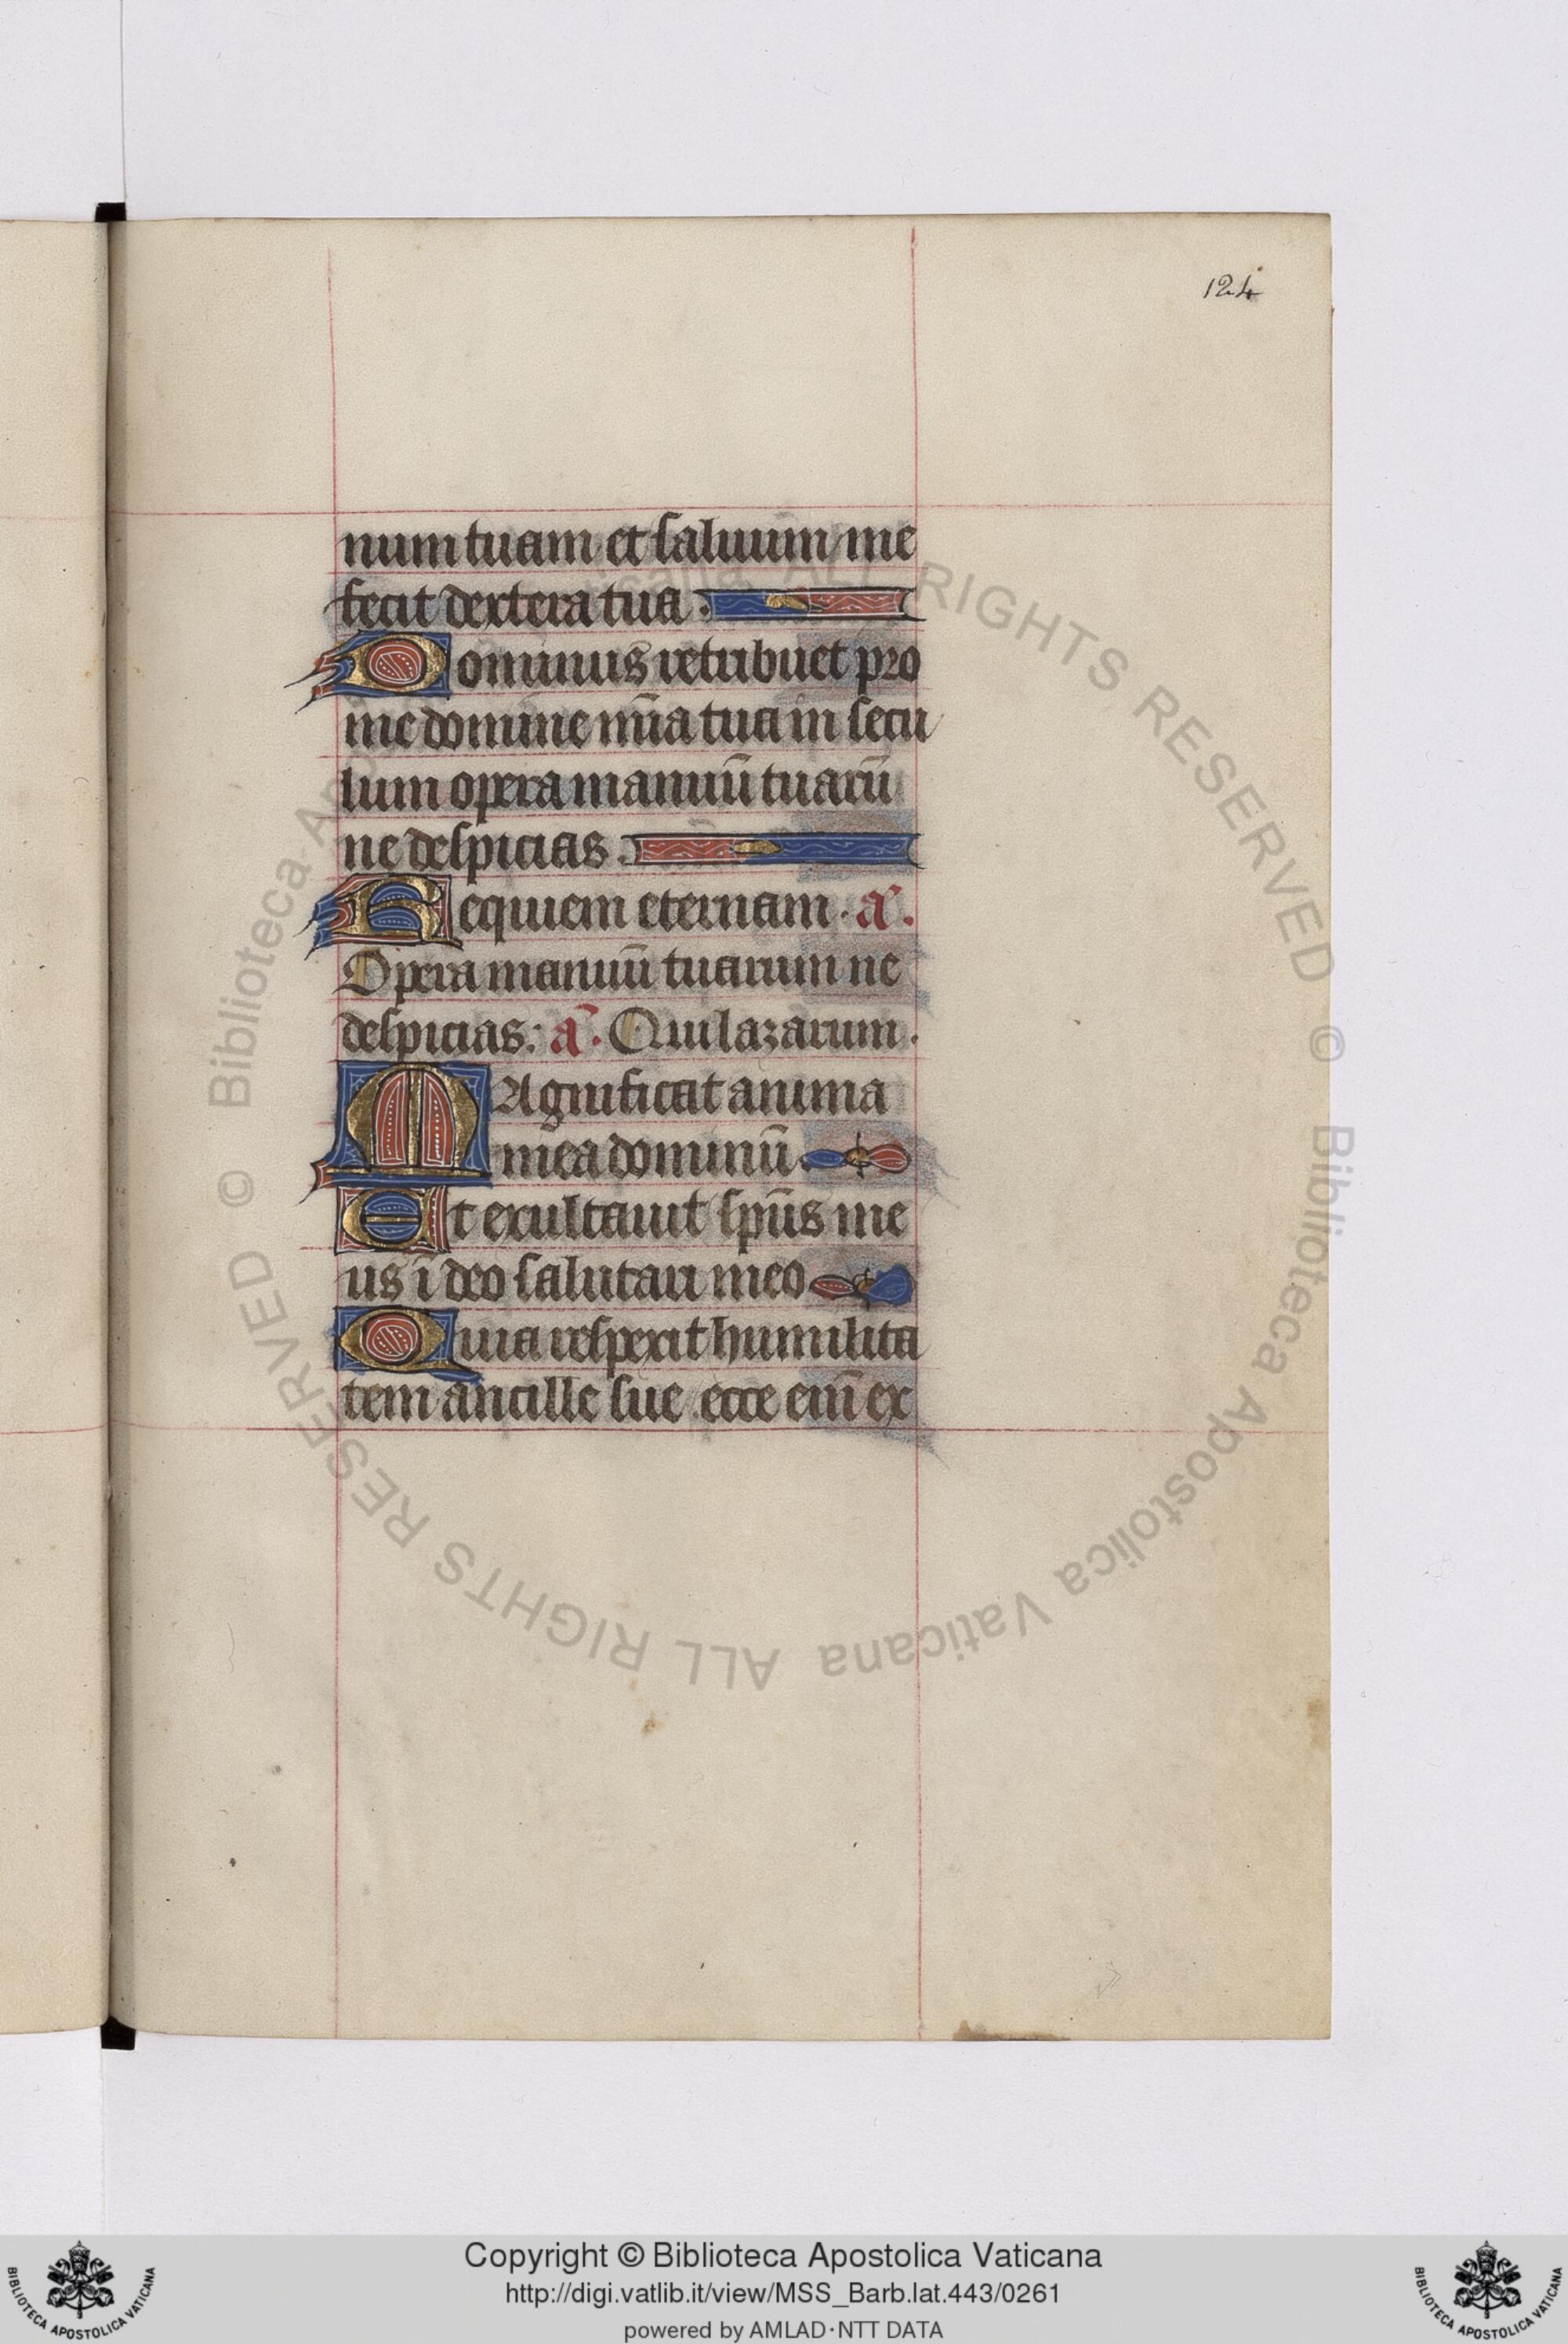 124
num tuam et saluum me
fecit dextera tua.
Dominus retribuet pro
me domine mīa tua in secu
lum opera manuū tuarū
ne despicias.
Requiem eternam. a.
Opera manuū tuarum ne
despicias: a. Qui lazarum.
MAgnificat anima
mea dominū.
Et exultauit sp̄us me
us ī deo salutari meo
Quia respexit humilita
tem ancille sue. ecce eni̅ ex
© Biblioteca Apostolica Vaticana ALL RIGHTS RESERVED © Biblioteca Apostolica Vaticana ALL RIGHTS RESERVED
Copyright © Biblioteca Apostolica Vaticana
http://digi.vatlib.it/view/MSS_Barb.lat.443/0261
powered by AMLAD·NTT DATA
BIBLIOTECA APOSTOLICA VATICANA
BIBLIOTECA APOSTOLICA VATICANA